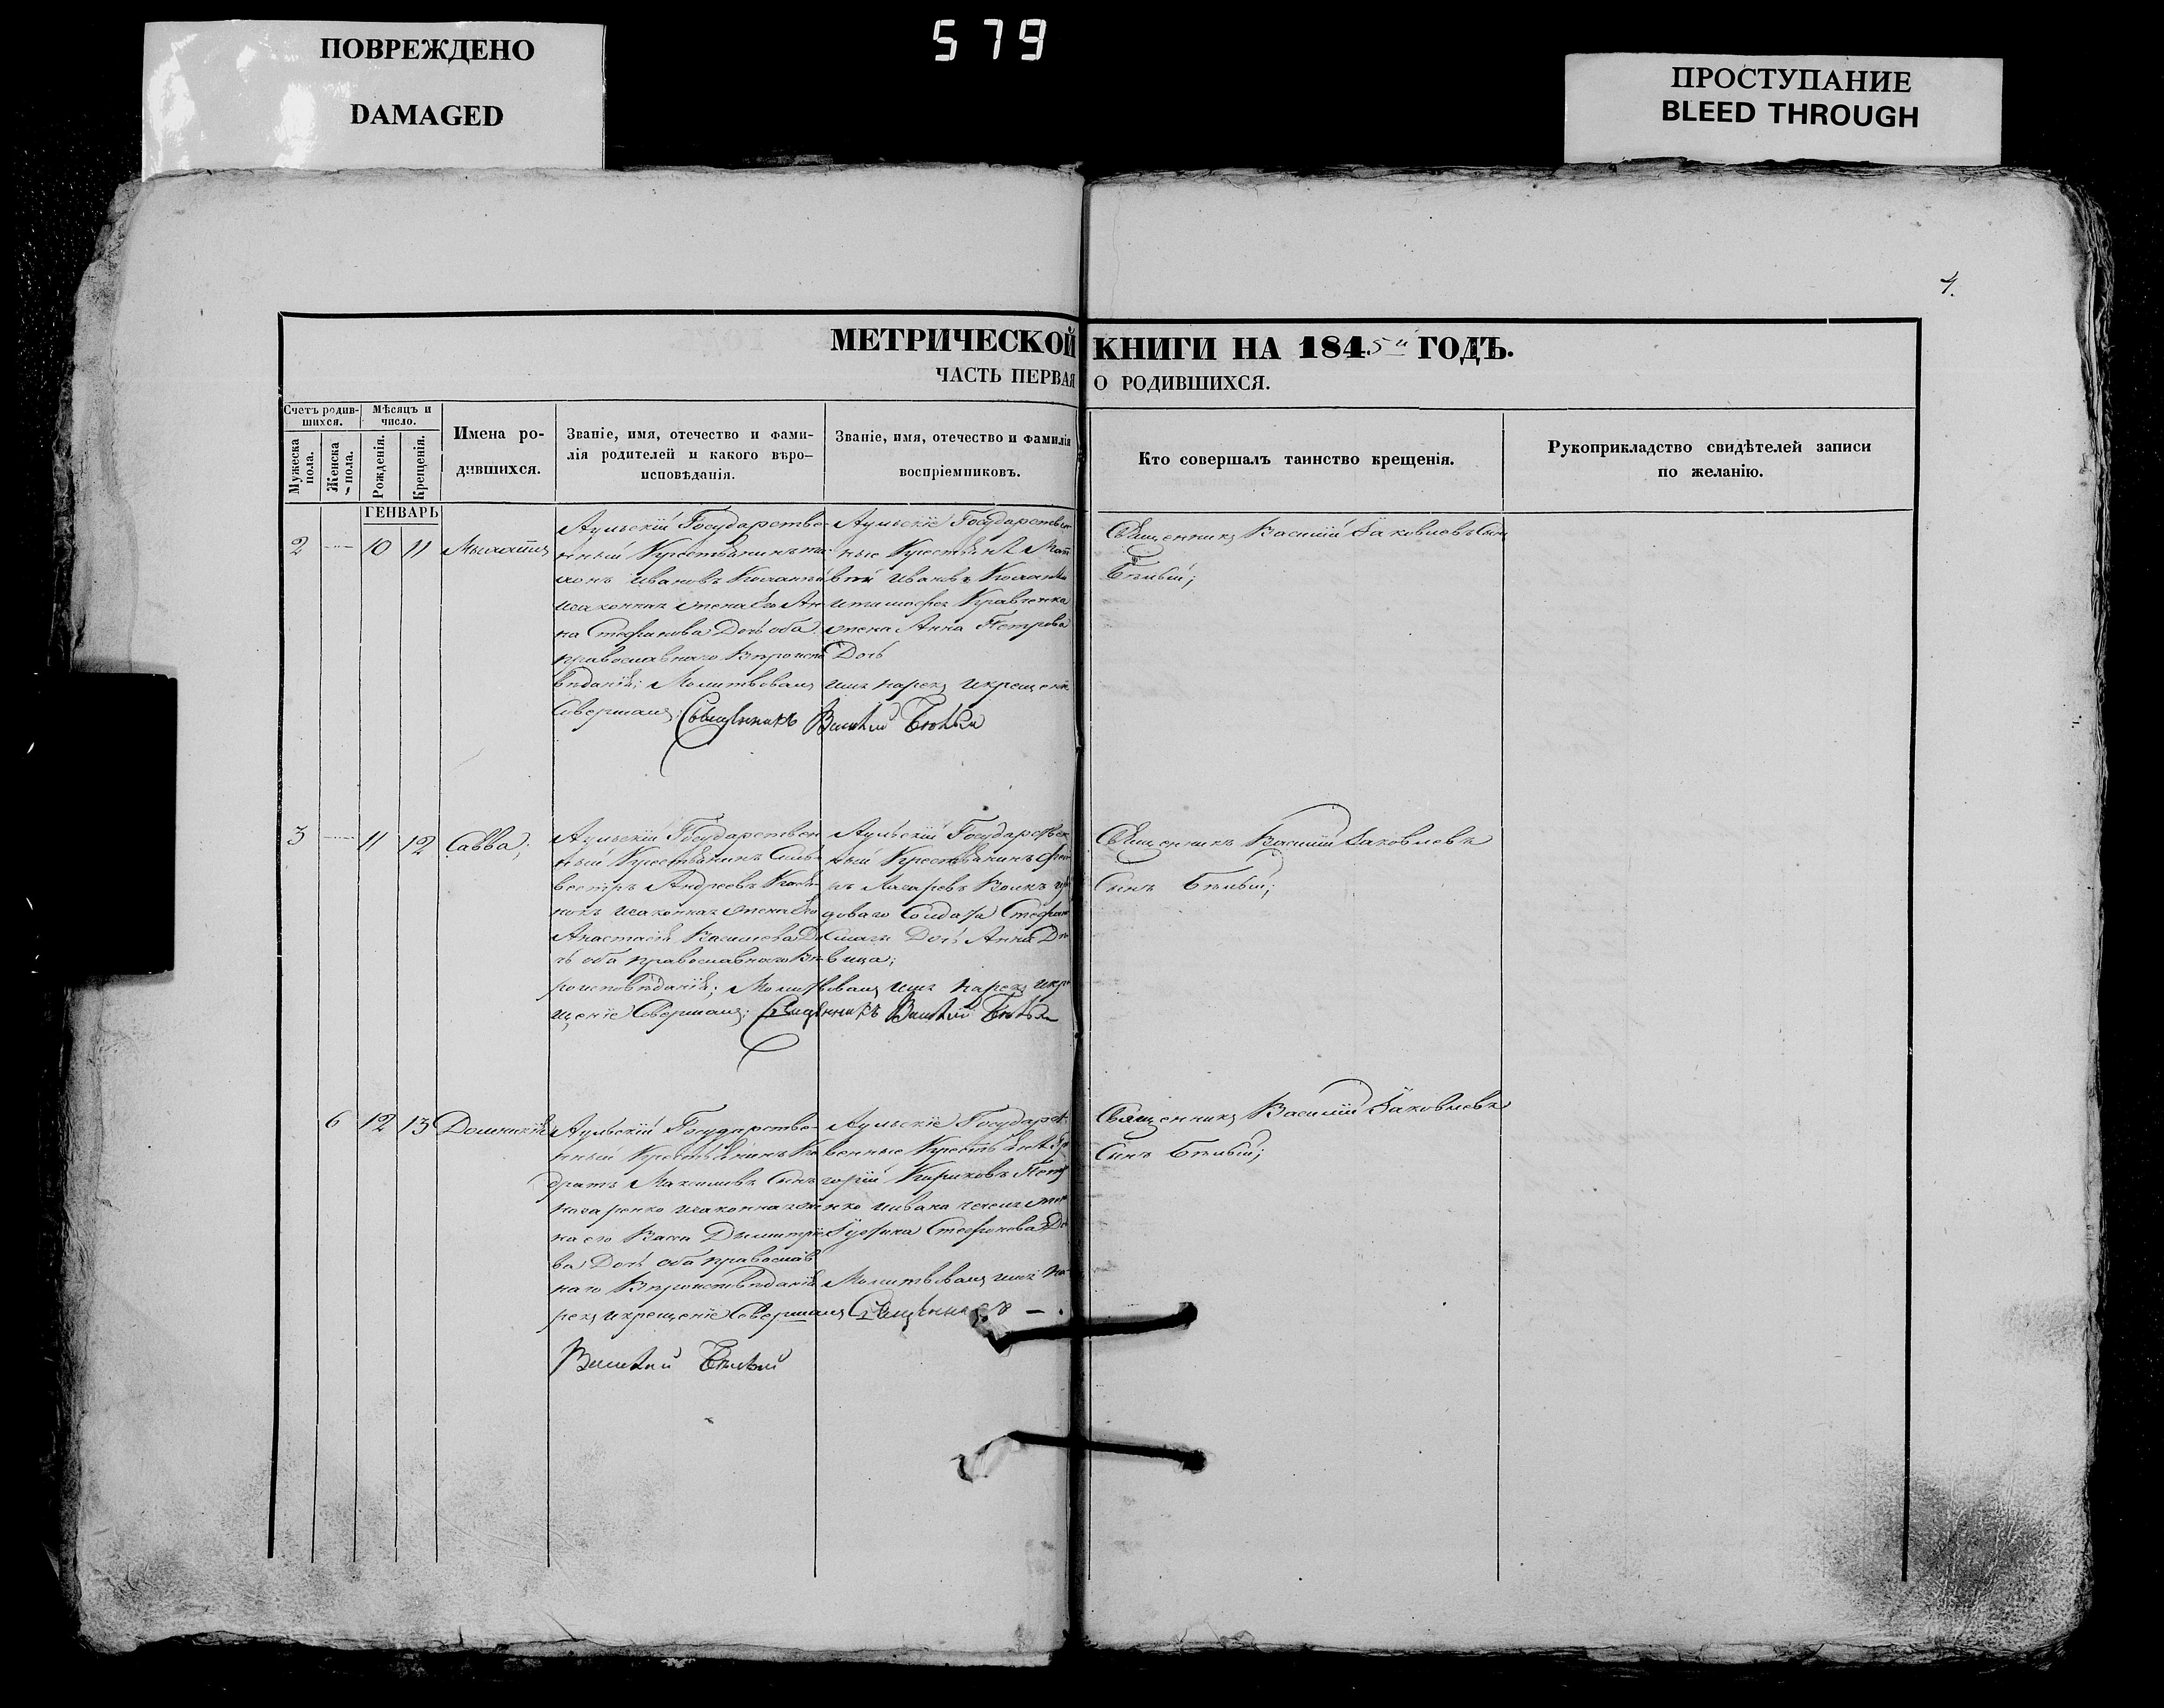 579
ПОВРЕЖДЕНО
DAMAGED
ПРОСТУПАНИЕ
BLEED THROUGH
4.
МЕТРИЧЕСКОЙ КНИГИ НА 1845й ГОДЪ.
ЧАСТЬ ПЕРВАЯ О РОДИВШИХСЯ.
Счетъ родив-
шихся.
Мужеска
пола.
Женска
пола.
Мѣсяцъ и
число.
Рожденія.
Крещенія.
Имена ро-
дившихся.
Званіе, имя, отечество и фами-
лія родителей и какого вѣро-
исповѣданія.
Званіе, имя, отечество и фамилія
воспріемниковъ.
Кто совершалъ таинство крещенія.
Рукоприкладство свидѣтелей записи
по желанію.
ГЕНВАРЬ
2 10 11
Аульскій Государстве-
нный Крестьянинъ
Ивановъ
изаконная жена его Ан-
на Стефанова Дочь оба
православнаго Вѣроиспо
вѣданія; Молитвовалъ имя нарекъ икрещеніе
Совершалъ: Священникъ Василій Бѣлый
Аульскіе Государствен
ные Крестьяне
Ивановъ
Кравченка
жена Анна Петрова
Дочь
Священникъ Василій Яковлевъ Сынъ
Бѣлый;
3 11 12 Савва;
Аульскій Государствен
ный Крестьянинъ Силь
вестръ Андреевъ
изаконная жена его
Анастасія Василиева До
чь оба православнаго Вѣ
роисповѣданія; Молитвовалъ имя нарекъ икре
щеніе Совершалъ; Священникъ Василій Бѣлый
Аульскій Государствен
ный Крестьянинъ
Лазаревъ
доваго Солдата Стефана
Дочь Анна Дѣ
вица;
Священникъ Василій Яковлевъ
Сынъ Бѣлый;
6 12 13 Домникія
Аульскій Государстве-
нный Крестьянинъ Ко
дратъ Максимовъ Сынъ
Назаренко изаконная же
на его Васса Димитріе
ва Дочь оба православ
наго Вѣроисповѣданія Молитвовалъ имя на
рекъ икрещеніе Совершалъ Священникъ
Василій Бѣлый
Аульскіе Государст
венные Крестьяне Гри
горій Кириковъ Петр
енко
Стефанова До
Священникъ Василій Яковлевъ
Сынъ Бѣлый;